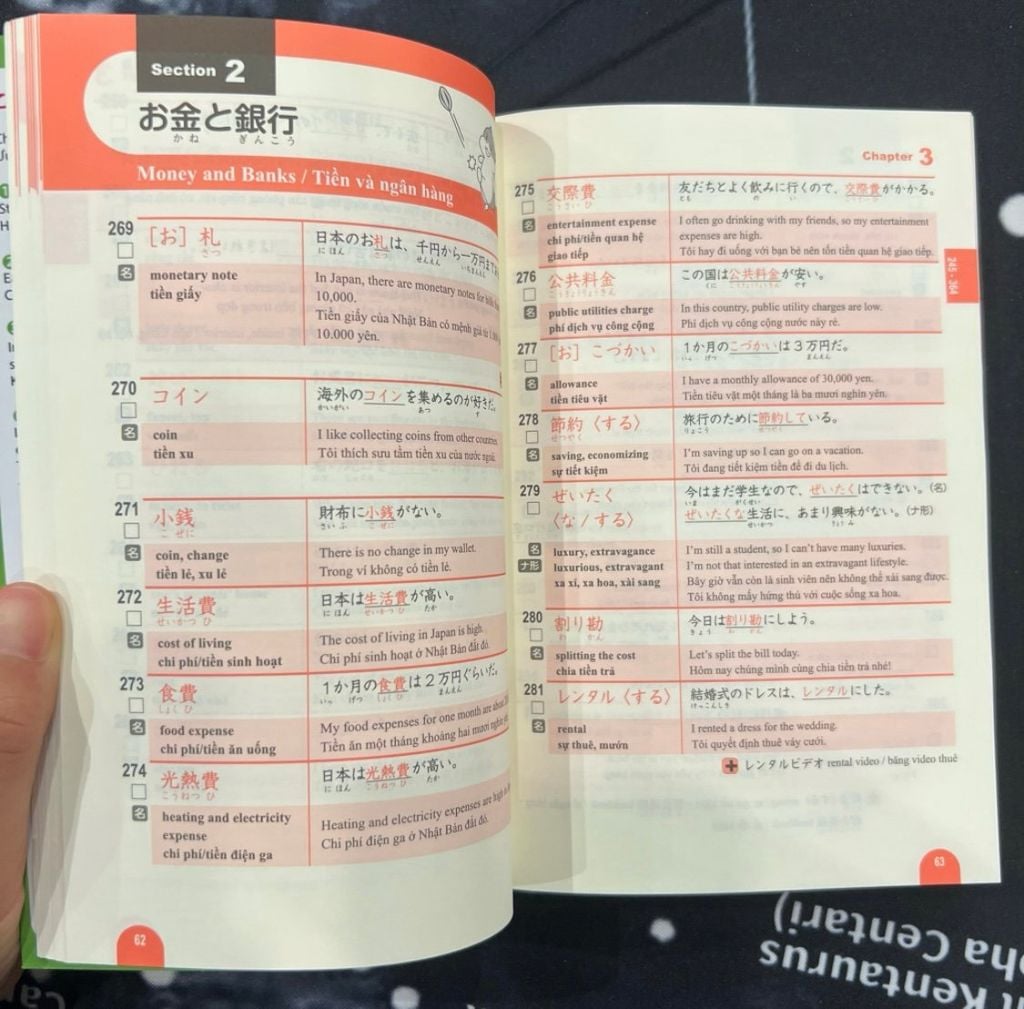 Section 2
お金と銀行
かね ぎんこう
Money and Banks / Tiền và ngân hàng
269
[お] 札
さつ
日本のお札は、千円から一万円まで
にほん さつ せんえん いちまんえん
名
monetary note
tiền giấy
In Japan, there are monetary notes for
10,000.
Tiền giấy của Nhật Bản có mệnh giá từ
10.000 yên.
270
コイン
海外のコインを集めるのが好きだ。
かいがい あつ す
名
coin
tiền xu
I like collecting coins from other countries.
Tôi thích sưu tầm tiền xu của nước ngoài.
271
小銭
こ ぜに
財布に小銭がない。
さい ふ こ ぜに
名
coin, change
tiền lẻ, xu lẻ
There is no change in my wallet.
Trong ví không có tiền lẻ.
272
生活費
せいかつ ひ
日本は生活費が高い。
に ほん せいかつ ひ たか
名
cost of living
chi phí/tiền sinh hoạt
The cost of living in Japan is high.
Chi phí sinh hoạt ở Nhật Bản đắt đỏ.
273
食費
しょく ひ
1か月の食費は2万円ぐらいだ。
いっ げつ しょくひ まんえん
名
food expense
chi phí/tiền ăn uống
My food expenses for one month are about
Tiền ăn một tháng khoảng hai mươi nghìn
274
光熱費
こうねつ ひ
日本は光熱費が高い。
に ほん こうねつ ひ たか
名
heating and electricity
expense
chi phí/tiền điện ga
Heating and electricity expenses are high
Chi phí điện ga ở Nhật Bản đắt đỏ.
62
Chapter 3
245 - 364
275
交際費
こうさい ひ
友だちとよく飲みに行くので、交際費がかかる。
とも の い こうさい ひ
名
entertainment expense
chi phí/tiền quan hệ
giao tiếp
I often go drinking with my friends, so my entertainment
expenses are high.
Tôi hay đi uống với bạn bè nên tốn tiền quan hệ giao tiếp.
276
公共料金
こうきょうりょうきん
この国は公共料金が安い。
くに こうきょうりょうきん やす
名
public utilities charge
phí dịch vụ công cộng
In this country, public utility charges are low.
Phí dịch vụ công cộng nước này rẻ.
277
[お] こづかい
1か月のこづかいは3万円だ。
いっ げつ まんえん
名
allowance
tiền tiêu vặt
I have a monthly allowance of 30,000 yen.
Tiền tiêu vặt một tháng là ba mươi nghìn yên.
278
節約〈する〉
せつやく
旅行のために節約している。
りょこう せつやく
名
saving, economizing
sự tiết kiệm
I'm saving up so I can go on a vacation.
Tôi đang tiết kiệm tiền để đi du lịch.
279
ぜいたく
〈な / する〉
今はまだ学生なので、ぜいたくはできない。(名)
いま がくせい
ぜいたくな生活に、あまり興味がない。(ナ形)
せいかつ きょう み
名
ナ形
luxury, extravagance
luxurious, extravagant
xa xỉ, xa hoa, xài sang
I'm still a student, so I can't have many luxuries.
I'm not that interested in an extravagant lifestyle.
Bây giờ vẫn còn là sinh viên nên không thể xài sang được.
Tôi không mấy hứng thú với cuộc sống xa hoa.
280
割り勘
わ かん
今日は割り勘にしよう。
きょう わ かん
名
splitting the cost
chia tiền trả
Let's split the bill today.
Hôm nay chúng mình cùng chia tiền trả nhé!
281
レンタル〈する〉
結婚式のドレスは、レンタルにした。
けっこんしき
名
rental
sự thuê, mướn
I rented a dress for the wedding.
Tôi quyết định thuê váy cưới.
+ レンタルビデオ rental video / băng video thuê
63
Kentaurus
Centari)